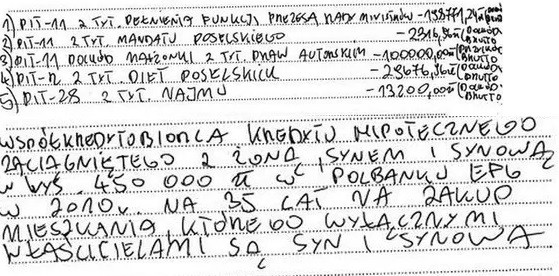 1) PIT-11 Z TYT. PEŁNIENIA FUNKCJI PREZESA RADY MINISTRÓW -
2) PIT-11 Z TYT. MANDATU POSELSKIEGO - DOCHÓD BRUTTO
3) PIT-11 DOCHÓD MAŁŻONKI Z TYT. PRAW AUTORSKICH - 100000,00zł BRUTTO
4) PIT-R Z TYT. DIET POSELSKICH - 28676,36zł (DOCHÓD BRUTTO
5) PIT-28 Z TYT. NAJMU - 13200,00zł (DOCHÓD BRUTTO
WSPÓŁKREDYTOBIORCA KREDYTU HIPOTECZNEGO
ZACIĄGNIĘTEGO Z ŻONĄ, SYNEM I SYNOWĄ
W WYS. 450 000 ZŁ W POLBANKU EFG
W 2010r. NA 35 LAT NA ZAKUP
MIESZKANIA, KTÓREGO WYŁĄCZNYMI
WŁAŚCICIELAMI SĄ SYN I SYNOWA